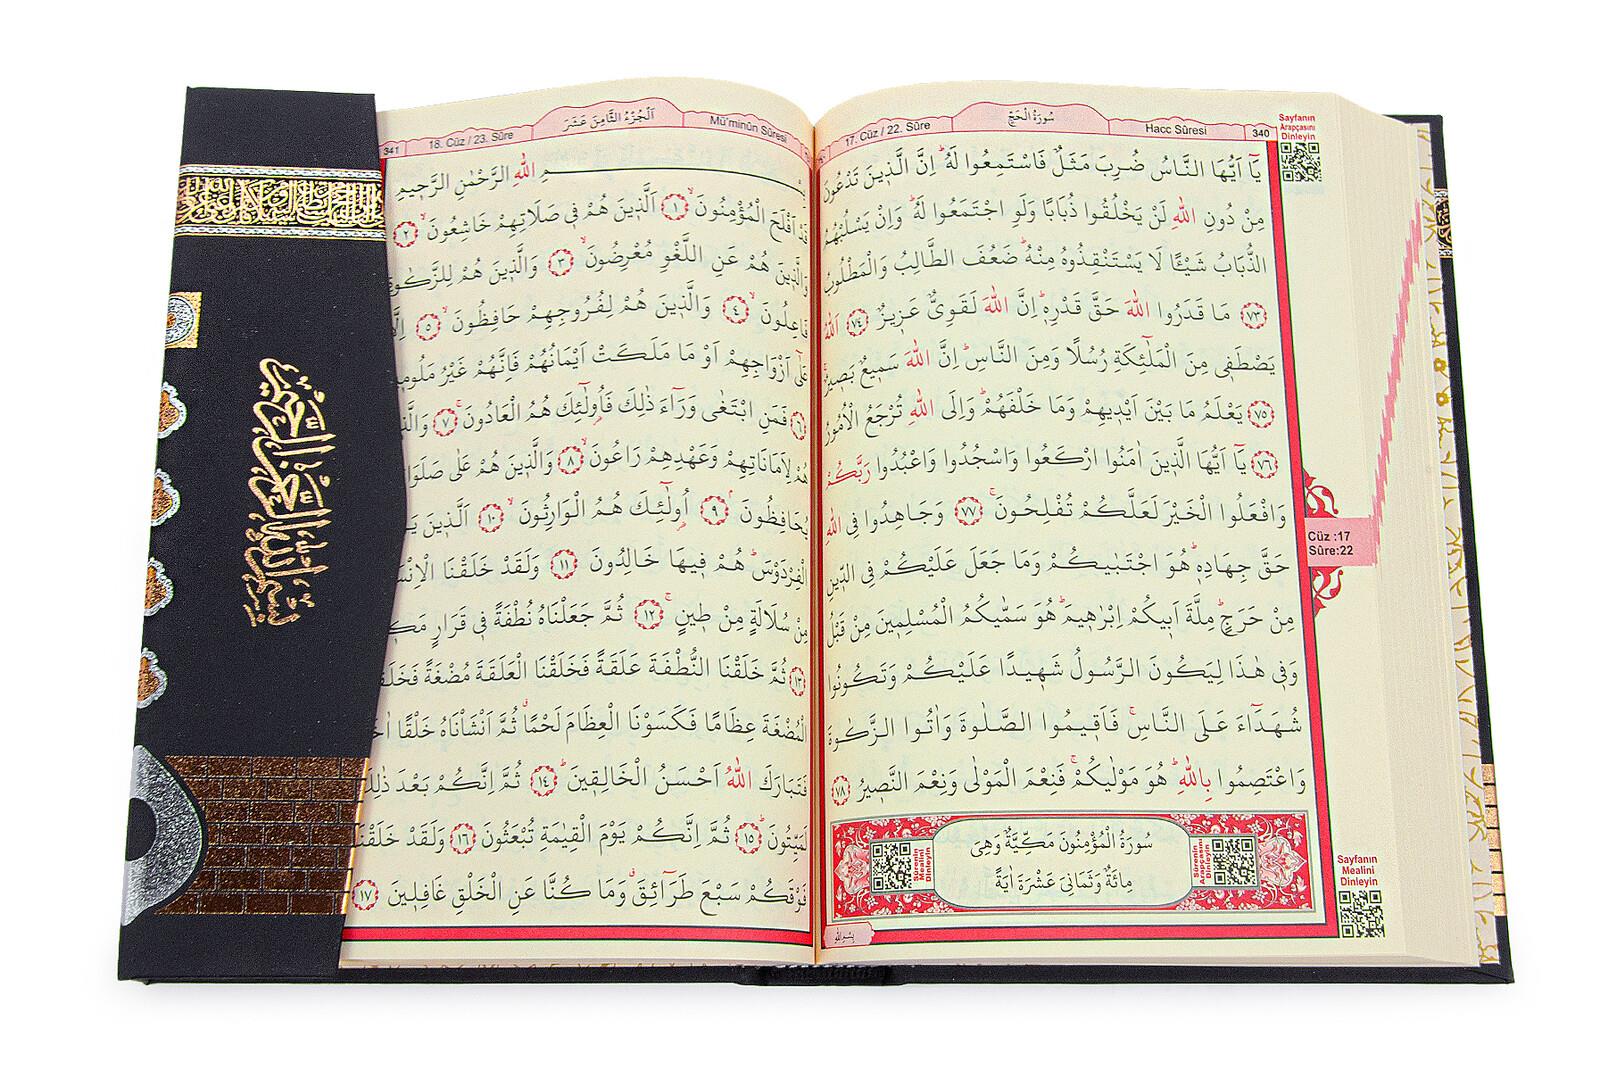 Sayfanın
Arapçasını
Dinleyin
340
Hacc Sûresi
سُورَةُ الْحَجِّ
17. Cüz / 22. Sûre
يَٓا اَيُّهَا النَّاسُ ضُرِبَ مَثَلٌ فَاسْتَمِعُوا لَهُۜ اِنَّ الَّذ۪ينَ تَدْعُونَ
مِنْ دُونِ اللّٰهِ لَنْ يَخْلُقُوا ذُبَابًا وَلَوِ اجْتَمَعُوا لَهُۜ وَاِنْ يَسْلُبْهُمُ
الذُّبَابُ شَيْـًٔا لَا يَسْتَنْقِذُوهُ مِنْهُۜ ضَعُفَ الطَّالِبُ وَالْمَطْلُوبُ
﴿٧٣﴾ مَا قَدَرُوا اللّٰهَ حَقَّ قَدْرِه۪ۜ اِنَّ اللّٰهَ لَقَوِيٌّ عَز۪يزٌ ﴿٧٤﴾ اَللّٰهُ
يَصْطَف۪ي مِنَ الْمَلٰٓئِكَةِ رُسُلًا وَمِنَ النَّاسِۜ اِنَّ اللّٰهَ سَم۪يعٌ بَص۪يرٌۚ
﴿٧٥﴾ يَعْلَمُ مَا بَيْنَ اَيْد۪يهِمْ وَمَا خَلْفَهُمْۜ وَاِلَى اللّٰهِ تُرْجَعُ الْاُمُورُ
﴿٧٦﴾ يَٓا اَيُّهَا الَّذ۪ينَ اٰمَنُوا ارْكَعُوا وَاسْجُدُوا وَاعْبُدُوا رَبَّكُمْ
وَافْعَلُوا الْخَيْرَ لَعَلَّكُمْ تُفْلِحُونَۚ ﴿٧٧﴾ وَجَاهِدُوا فِي اللّٰهِ
حَقَّ جِهَادِه۪ۜ هُوَ اجْتَبٰيكُمْ وَمَا جَعَلَ عَلَيْكُمْ فِي الدّ۪ينِ
مِنْ حَرَجٍۜ مِلَّةَ اَب۪يكُمْ اِبْرٰه۪يمَۜ هُوَ سَمّٰيكُمُ الْمُسْلِم۪ينَ مِنْ قَبْلُ
وَف۪ي هٰذَا لِيَكُونَ الرَّسُولُ شَه۪يدًا عَلَيْكُمْ وَتَكُونُوا
شُهَدَٓاءَ عَلَى النَّاسِۚ فَاَق۪يمُوا الصَّلٰوةَ وَاٰتُوا الزَّكٰوةَ
وَاعْتَصِمُوا بِاللّٰهِۜ هُوَ مَوْلٰيكُمْۚ فَنِعْمَ الْمَوْلٰى وَنِعْمَ النَّص۪يرُ ﴿٧٨﴾
سُورَةُ الْمُؤْمِنُونَ مَكِّيَّةٌ وَهِيَ
مِائَةٌ وَثَمَانِيَ عَشْرَةَ اٰيَةً
Sûrenin
Arapçasını
Dinleyin
Sûrenin
Mealini
Dinleyin
بِسْمِ اللّٰهِ
Cüz :17
Sûre:22
Sayfanın
Mealini
Dinleyin
Mü'minûn Sûresi
اَلْجُزْءُ الثَّامِنَ عَشَرَ
18. Cüz / 23. Sûre
341
بِسْمِ اللّٰهِ الرَّحْمٰنِ الرَّح۪يمِ
قَدْ اَفْلَحَ الْمُؤْمِنُونَۙ ﴿١﴾ اَلَّذ۪ينَ هُمْ ف۪ي صَلَاتِهِمْ خَاشِعُونَۙ ﴿٢﴾
وَالَّذ۪ينَ هُمْ عَنِ اللَّغْوِ مُعْرِضُونَۙ ﴿٣﴾ وَالَّذ۪ينَ هُمْ لِلزَّكٰوةِ
فَاعِلُونَۙ ﴿٤﴾ وَالَّذ۪ينَ هُمْ لِفُرُوجِهِمْ حَافِظُونَۙ ﴿٥﴾
عَلٰٓى اَزْوَاجِهِمْ اَوْ مَا مَلَكَتْ اَيْمَانُهُمْ فَاِنَّهُمْ غَيْرُ
﴿٦﴾ فَمَنِ ابْتَغٰى وَرَٓاءَ ذٰلِكَ فَاُو۬لٰٓئِكَ هُمُ الْعَادُونَۚ ﴿٧﴾
هُمْ لِاَمَانَاتِهِمْ وَعَهْدِهِمْ رَاعُونَۙ ﴿٨﴾ وَالَّذ۪ينَ هُمْ عَلٰى
يُحَافِظُونَۢ ﴿٩﴾ اُو۬لٰٓئِكَ هُمُ الْوَارِثُونَۙ ﴿١٠﴾ اَلَّذ۪ينَ
الْفِرْدَوْسَۜ هُمْ ف۪يهَا خَالِدُونَ ﴿١١﴾ وَلَقَدْ خَلَقْنَا
مِنْ سُلَالَةٍ مِنْ ط۪ينٍۚ ﴿١٢﴾ ثُمَّ جَعَلْنَاهُ نُطْفَةً ف۪ي قَرَارٍ
﴿١٣﴾ ثُمَّ خَلَقْنَا النُّطْفَةَ عَلَقَةً فَخَلَقْنَا الْعَلَقَةَ مُضْغَةً
الْمُضْغَةَ عِظَامًا فَكَسَوْنَا الْعِظَامَ لَحْمًا ثُمَّ اَنْشَأْنَاهُ خَلْقًا
فَتَبَارَكَ اللّٰهُ اَحْسَنُ الْخَالِق۪ينَۜ ﴿١٤﴾ ثُمَّ اِنَّكُمْ بَعْدَ ذٰلِكَ
لَمَيِّتُونَۜ ﴿١٥﴾ ثُمَّ اِنَّكُمْ يَوْمَ الْقِيٰمَةِ تُبْعَثُونَ ﴿١٦﴾ وَلَقَدْ خَلَقْنَا
فَوْقَكُمْ سَبْعَ طَرَٓائِقَۗ وَمَا كُنَّا عَنِ الْخَلْقِ غَافِل۪ينَ ﴿١٧﴾
بسم الله الرحمن الرحيم